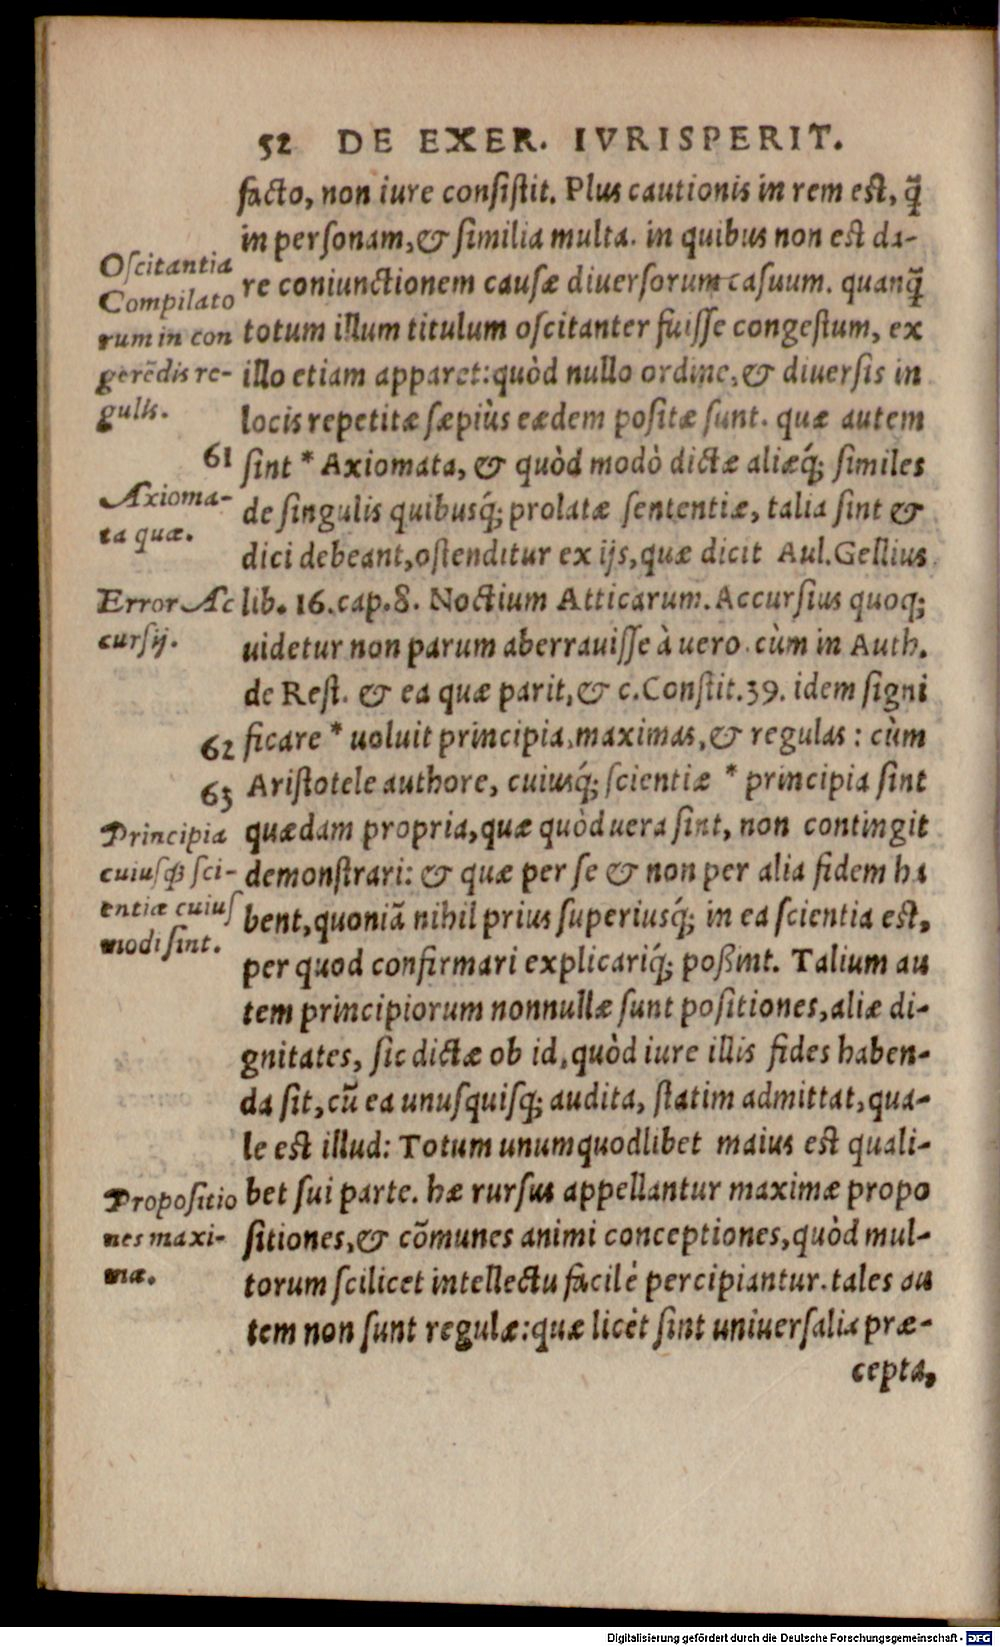 52 DE EXER. IVRISPERIT.
facto, non iure consistit. Plus cautionis in rem est, q̃
in personam, & similia multa. in quibus non est da-
re coniunctionem causæ diuersorum casuum. quanq̃
totum illum titulum oscitanter fuisse congestum, ex
illo etiam apparet: quòd nullo ordine, & diuersis in
locis repetitæ sæpiùs eædem positæ sunt. quæ autem
sint * Axiomata, & quòd modò dictæ aliæq́; similes
de singulis quibusq́; prolatæ sententiæ, talia sint &
dici debeant, ostenditur ex ijs, quæ dicit Aul. Gellius
lib. 16. cap. 8. Noctium Atticarum. Accursius quoq;
uidetur non parum aberrauisse à uero. cùm in Auth.
de Rest. & ea quæ parit, & c. Constit. 39. idem signi
ficare * uoluit principia, maximas, & regulas: cùm
Aristotele authore, cuiusq́; scientiæ * principia sint
quædam propria, quæ quòd uera sint, non contingit
demonstrari: & quæ per se & non per alia fidem ha
bent, quoniã nihil prius superiusq́; in ea scientia est,
per quod confirmari explicariq́; poßint. Talium au
tem principiorum nonnullæ sunt positiones, aliæ di-
gnitates, sic dictæ ob id, quòd iure illis fides haben-
da sit, cũ ea unusquisq; audita, statim admittat, qua-
le est illud: Totum unumquodlibet maius est quali-
bet sui parte. hæ rursus appellantur maximæ propo
sitiones, & cõmunes animi conceptiones, quòd mul-
torum scilicet intellectu facilè percipiantur. tales au
tem non sunt regulæ: quæ licèt sint uniuersalia præ-
cepta,
Oscitantia
Compilato
rum in con
gerẽdis re-
gulis.
61
Axioma-
ta quæ.
Error Ac
cursij.
62
63
Principia
cuiusq; sci-
entiæ cuius
modi sint.
Propositio
nes maxi-
mæ.
Digitalisierung gefördert durch die Deutsche Forschungsgemeinschaft - DFG